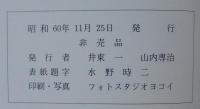 昭和60年11月25日 発行
非売品
発行者 井東一 山内専治
表紙題字 水野時二
印刷・写真 フォトスタジオヨコイ